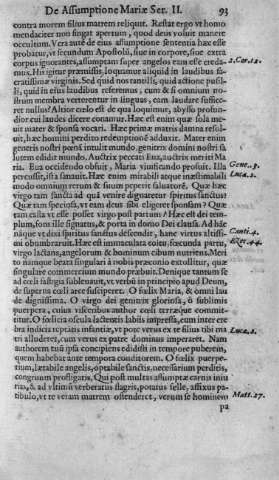 De Assumptione Mariæ Ser. II. 93
contra morem filius matrem reliquit. Restat ergo ut homo
mendaciter non singat apertum, quod deus voluit manere
occultum. Vera autē de eius assumptione sententia hæc esse
probatur, ut secundum Apostolū, siue in corpore, siue extra
corpus ignorantes, assumptam super angelos eam esse creda-
2. Cor. 12.
mus. His igitur præmissis, loquamur aliquid in laudibus sa-
cratissimæ virginis. Sed quid nos tantilli, quid actione pusil-
li, quid in eius laudibus referemus, cum & si omnium no-
strum membra verterentur in linguas, eam laudare suffice-
ret nullus? Altior cœlo est de qua loquimur, abysso profun-
dior cui laudes dicere conamur. Hæc est enim quæ sola me-
ruit mater & sponsa vocari. Hæc primæ matris damna resol-
uit, hæc homini perdito redemptionē adduxit. Mater enim
generis nostri pœnā intulit mundo. genitrix domini nostri sa
lutem edidit mundo. Auctrix peccati Eua, auctrix meriti Ma
ria. Eua occidendo obfuit, Maria viuificando profuit. Illa
Gene. 3.
percussit, ista sanauit. Hæc enim mirabili atque inæstimabili
Luca. 1.
modo omnium rerum & suum peperit saluatorē. Quæ hæc
virgo tam sancta ad quā venire dignaretur spiritus sanctus?
Quæ tam speciosa, vt eam deus sibi eligeret sponsam? Quæ
tam casta vt esse posset virgo post partum? Hæc est dei tem-
plum, fons ille signatus, & porta in domo Dei clausa. Ad hāc
Canti. 4.
nāque vt dixi spiritus sanctus descendit, hanc virtus altissi-
Eze. 44.
mi obumbrauit. Hæc est immaculata coitu, fœcunda partu,
virgo lactans, angelorum & hominum cibum nutriens. Meri
to namque beata singulari à nobis præconio extollitur, quæ
singulare commercium mundo præbuit. Denique tantum se
ad cœli fastigia subleuauit, vt verbū in principio apud Deum,
de superna cœli arce susciperet. O fœlix Maria, & omni lau
de dignissima. O virgo dei genitrix gloriosa, ô sublimis
puerpera, cuius visceribus author cœli terræque commit-
titur. O fœlicia oscula lactentis labiis impressa, cum inter cre
bra indicia reptantis infantiæ, vt pote verus ex te filius tibi ma
Luca. 2.
tri alluderet, cum verus ex patre dominus imperaret. Nam
authorem tuū ipsa concipiens edidisti in tempore puerum,
quem habebat ante tempora conditorem. O fœlix puerpe-
rium, lætabile angelis, optabile sanctis, necessarium perditis,
congruum profligatis, Qui post multas assumptæ carnis iniu
rias, & ad vltimū verberatus flagris, potatus felle, affixus pa-
tibulo, vt te veram matrem ostenderet, verum se hominem
Matt. 27.
pa